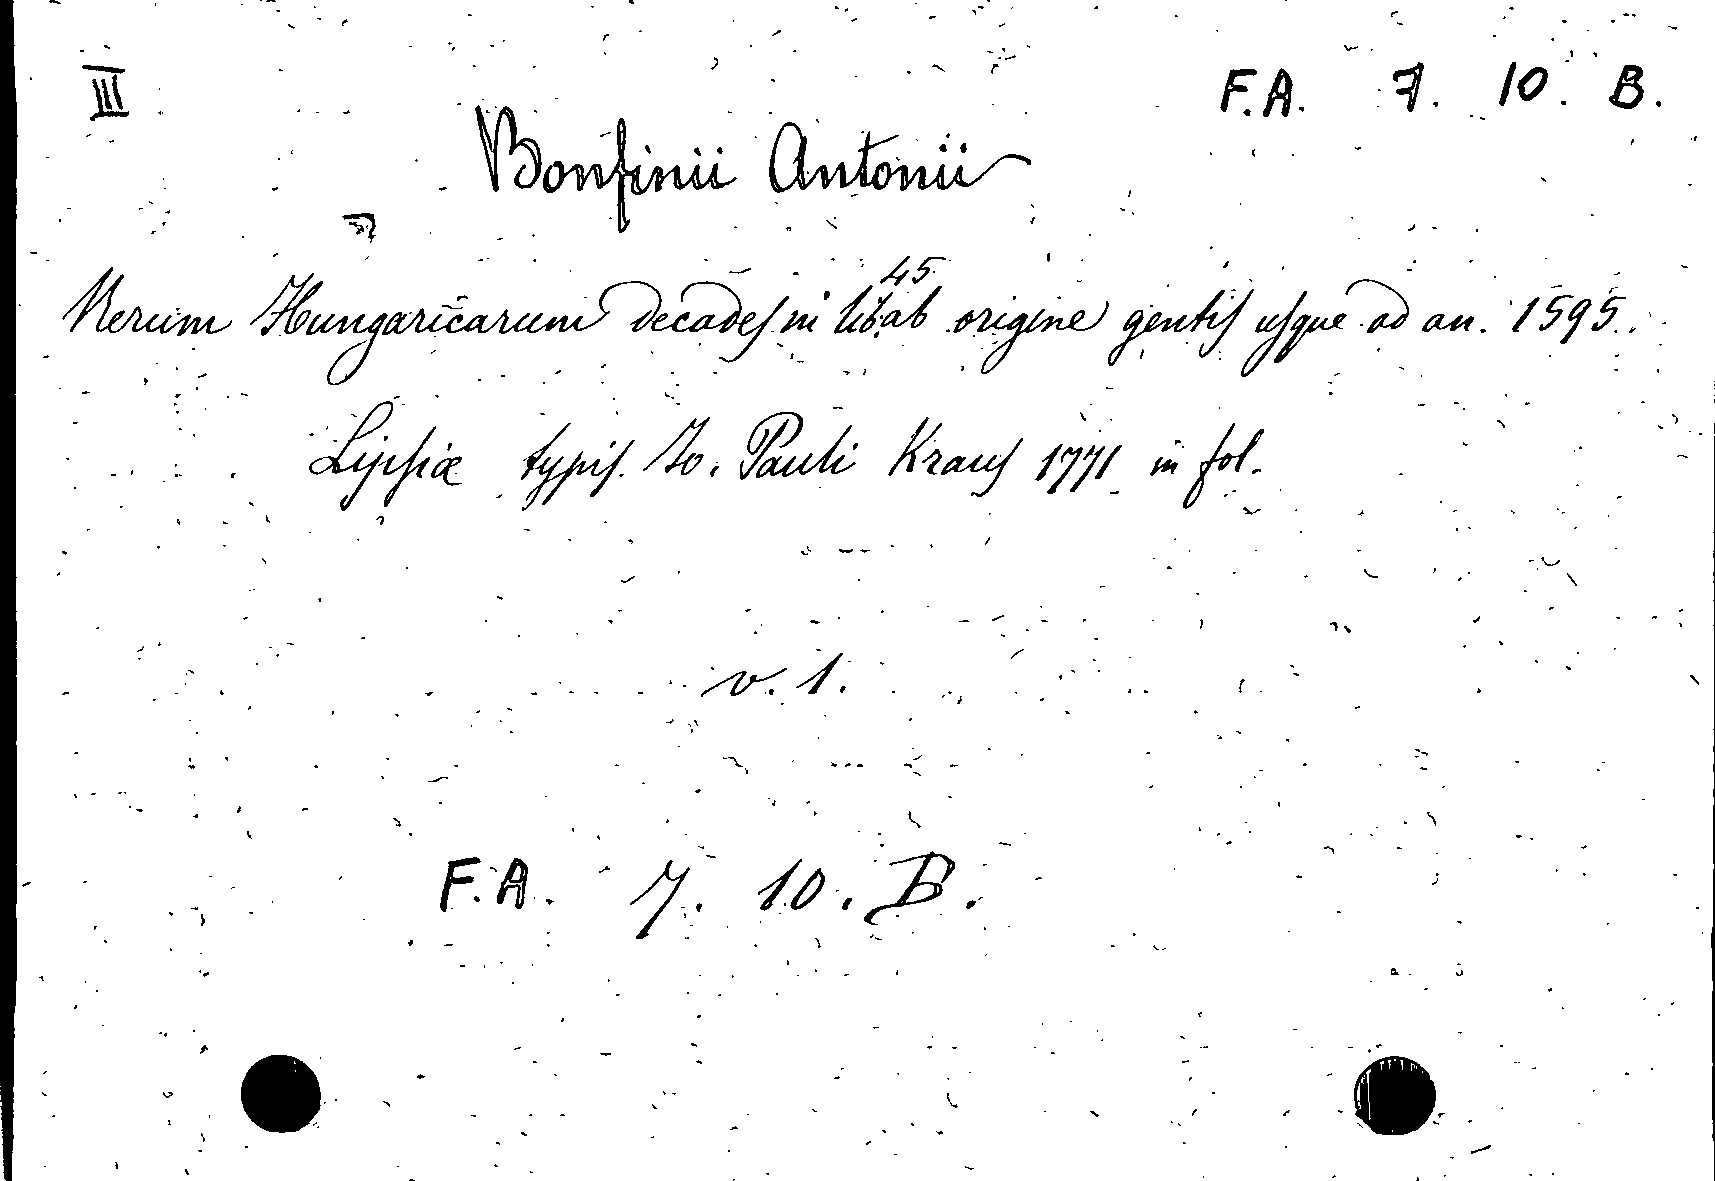 III
F.A. 7. 10. B.
Bonfinii Antonii
Rerum Hungaricarum decades in lib. 45 ab origine gentis usque ad an. 1595.
Lipsiæ typis. Io. Pauli Kraus 1771 in fol.
v. 1.
F.A. 7. 10. B.